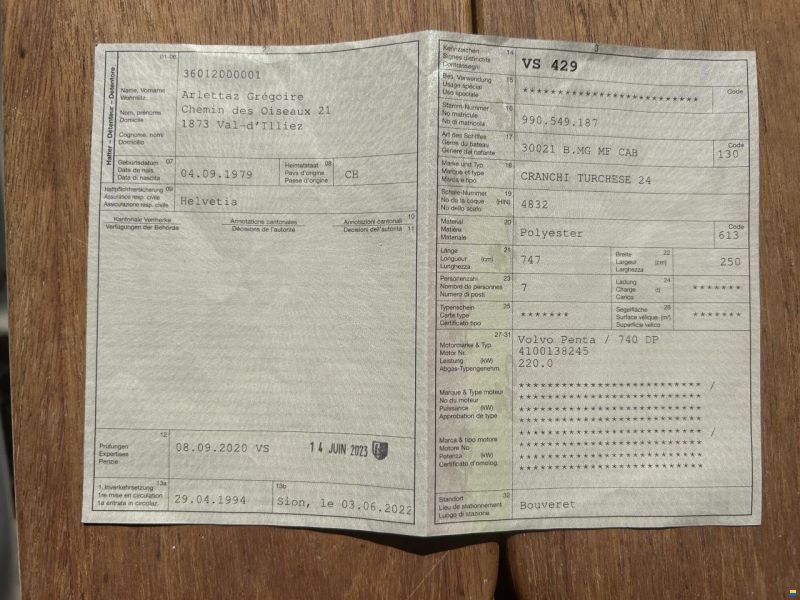 2
01-06
Halter – Détenteur – Detentore
Name, Vorname
Wohnsitz
Nom, prénoms
Domicile
Cognome, nomi
Domicilio
36012000001
Arlettaz Grégoire
Chemin des Oiseaux 21
1873 Val-d'Illiez
Geburtsdatum 07
Date de nais.
Data di nascita
04.09.1979
Heimatstaat 08
Pays d'origine
Paese d'origine
CH
Haftpflichtversicherung 09
Assurance resp. civile
Assicurazione resp. civile
Helvetia
Kantonale Vermerke
Annotations cantonales
Annotazioni cantonali 10
Verfügungen der Behörde
Décisions de l'autorité
Decisioni dell'autorità 11
12
Prüfungen
Expertises
Perizie
08.09.2020 VS
14 JUIN 2023
13a
1. Inverkehrsetzung
1re mise en circulation
1a entrata in circolaz.
29.04.1994
13b
Sion, le 03.06.2022
3
Kennzeichen 14
Signes distinctifs
Contrassegni
VS 429
Bes. Verwendung 15
Usage spécial
Uso speciale
*************************
Code
Stamm-Nummer 16
No matricule
No di matricola
990.549.187
Art des Schiffes 17
Genre du bateau
Genere del natante
30021 B.MG MF CAB
Code
130
Marke und Typ 18
Marque et type
Marca e tipo
CRANCHI TURCHESE 24
Schale-Nummer 19
No de la coque (HIN)
No dello scafo
4832
Material 20
Matière
Materiale
Polyester
Code
613
Länge 21
Longueur (cm)
Lunghezza
747
Breite 22
Largeur (cm)
Larghezza
250
Personenzahl 23
Nombre de personnes
Numero di posti
7
Ladung 24
Charge (t)
Carico
*******
Typenschein 25
Carte type
Certificato tipo
*******
Segelfläche 26
Surface vélique (m²)
Superficie velico
*******
27-31
Motormarke & Typ
Motor Nr.
Leistung (kW)
Abgas-Typengenehm.
Volvo Penta / 740 DP
4100138245
220.0
Marque & Type moteur
No du moteur
Puissance (kW)
Approbation de type
************************** /
**************************
**************************
**************************
Marca & tipo motore
Motore No
Potenza (kW)
Certificato d'omolog.
************************** /
**************************
**************************
**************************
Standort 32
Lieu de stationnement
Luogo di stazione
Bouveret